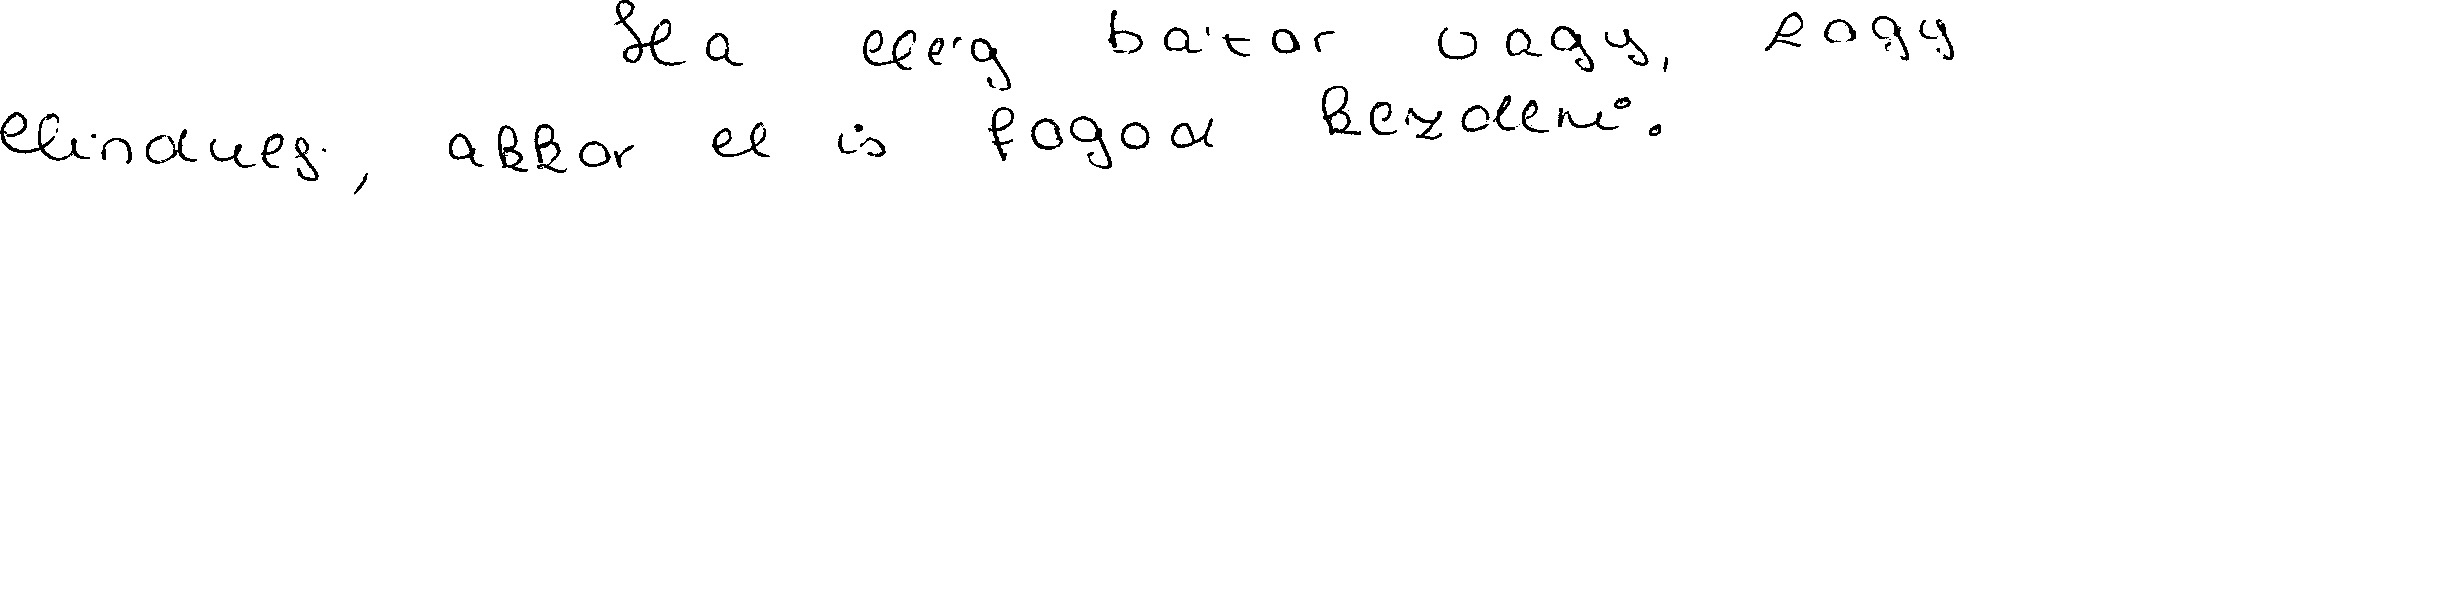 Ha elég bátor vagy, hogy
elindulj, akkor el is fogod kezdeni.